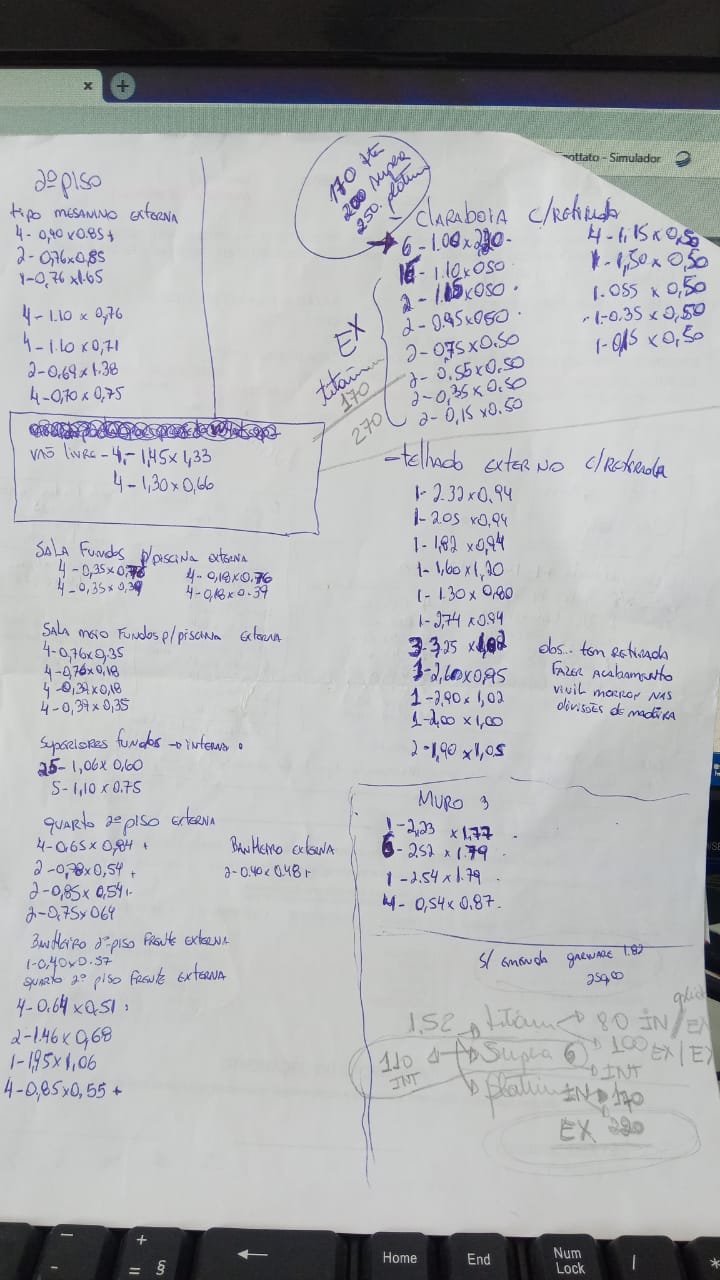 ottato - Simulador
2º PISO
tipo MESANINO EXTERNA
4- 0,40 x 0.85 +
2- 0,76x0,85
1-0,76 x1.65
4-1.10 x 0,76
4-1.10 x 0,71
2-0,69 x 1.38
4-0,70 x 0,75
VÃO LIVRE - 4,- 1,45 x 1,33
4 - 1,30 x 0,66
SALA FUNDOS P/PISCINA EXTERNA
4-0,35x0,76 4-0,18x0.76
4-0,35x0,39 4-0,18x0.39
SALA MEIO FUNDOS P/PISCINA EXTERNA
4-0,76x0,35
4-0,76x0,18
4-0,39x0,18
4-0,39x0,35
SUPERIORES FUNDOS → INTERNO
25- 1,06x 0,60
5- 1,10 x 0.75
QUARTO 2º PISO EXTERNA
4-0,65 x 0,84 +
2-0,78x0,54 +
2-0,85x 0,54+
2-0,75x 064
BANHEIRO EXTERNA
2-0.40x0.48+
BANHEIRO 2º PISO FRENTE EXTERNA
1-0,40x0.57
QUARTO 2º PISO FRENTE EXTERNA
4-0.64 x0,51
2-1.46 x 0,68
1-1,95 x 1,06
4-0,85x0,55 +
170
200 supra
250. platinum
CLARABOIA C/RETIRADA
6-1.00x
- 1.10x050
2- x050
2-0.95x050
2-0,75x0.50
2-0.55x0.50
2-0,35x0.50
2-0,15x0.50
4-1,15x0,50
1-1,50x0,50
1.055 x 0,50
1-0.35 x 0,50
1-0,15 x 0,50
EX
titanium
170
270
-telhado EXTERNO C/RETIRADA
1-2.32x0.94
1-2.05 x0,94
1-1,82 x0,94
1-1,60x1,20
1-1.30x0,80
1-2,74 x0.94
3-3,25 x1,02
-2,60x0,95
1-2,90x1,02
1-2,00 x 1,00
2-1,90 x1,05
obs.. tem RETIRADA
FAZER ACABAMENTO
VINIL MARROM NAS
divisões de madeira
MURO 3
1-2,23 x1,77
6-2.52 x1.79
1-2.54x1.79
4- 0,54x0.87.
S/ emenda garware 1.82
250,00
1.52 titânium 80 IN/EX
110 INT Supra 6 100 EX/EX
INT
platinum IN 170
EX 220
Home
End
Num
Lock